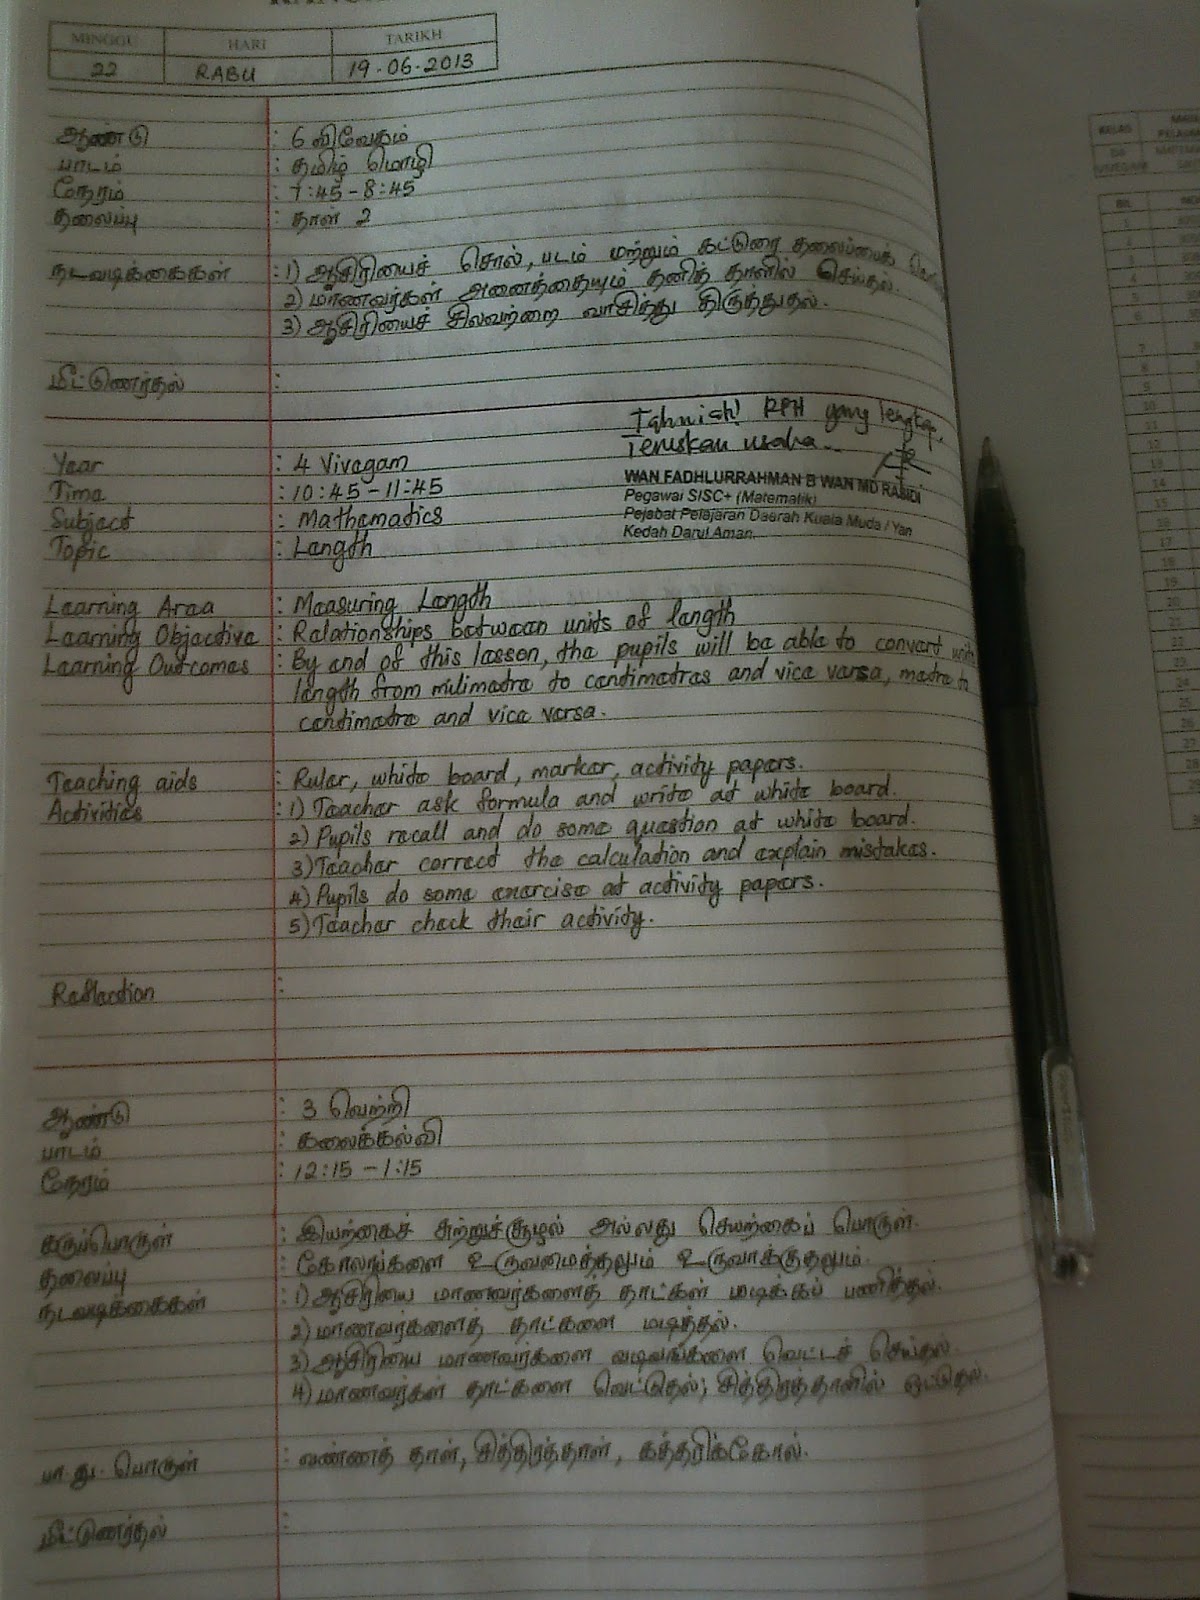 MINGGU HARI TARIKH
22 RABU 19-06-2013
ஆண்டு : 6 விவேகம்
பாடம் : தமிழ் மொழி
நேரம் : 7:45 - 8:45
தலைப்பு : தாள் 2
நடவடிக்கைகள் : 1) ஆசிரியைச் சொல், படம் மற்றும் கட்டுரை தலைப்பைக்
2) மாணவர்கள் அனைத்தையும் தனித் தாளில் செய்தல்.
3) ஆசிரியைச் சிலவற்றை வாசித்து திருத்துதல்.
மீட்டுணர்தல் :
Tahniah! RPH yang lengkap.
Teruskan usaha..
WAN FADHLURRAHMAN B WAN MD RASIDI
Pegawai SISC+ (Matematik)
Pejabat Pelajaran Daerah Kuala Muda / Yan
Kedah Darul Aman.
Year : 4 Vivegam
Time : 10:45 - 11:45
Subject : Mathematics
Topic : Length
Learning Area : Measuring Length
Learning Objective : Relationships between units of length
Learning Outcomes : By end of this lesson, the pupils will be able to convert
length from milimetre to centimetres and vice versa, metre to
centimetre and vice versa.
Teaching aids : Ruler, white board, marker, activity papers.
Activities : 1) Teacher ask formula and write at white board.
2) Pupils recall and do some question at white board.
3) Teacher correct the calculation and explain mistakes.
4) Pupils do some exercise at activity papers.
5) Teacher check their activity.
Reflection :
ஆண்டு : 3 வெற்றி
பாடம் : கலைக்கல்வி
நேரம் : 12:15 - 1:15
கருப்பொருள் : இயற்கைச் சுற்றுச்சூழல் அல்லது செயற்கைப் பொருள்.
தலைப்பு : கோலங்களை உருவமைத்தலும் உருவாக்குதலும்.
நடவடிக்கைகள் : 1) ஆசிரியை மாணவர்களைத் தாட்கள் மடிக்கப் பணித்தல்.
2) மாணவர்களைத் தாட்களை மடித்தல்.
3) ஆசிரியை மாணவர்களை வடிவங்களை வெட்டச் செய்தல்.
4) மாணவர்கள் தாட்களை வெட்டுதல்; சித்திரத்தாளில் ஒட்டுதல்.
பா.து. பொருள் : வண்ணத் தாள், சித்திரத்தாள், கத்தரிக்கோல்.
மீட்டுணர்தல் :
KELAS
BIL